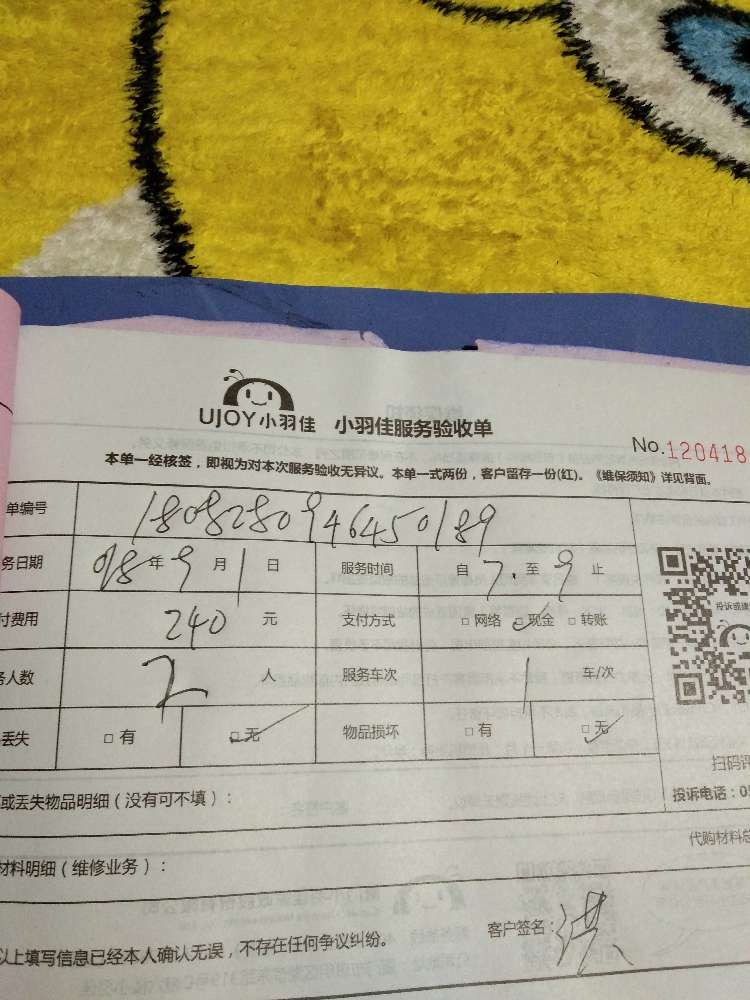 UJOY小羽佳 小羽佳服务验收单
No.120418
本单一经核签，即视为对本次服务验收无异议。本单一式两份，客户留存一份(红)。《维保须知》详见背面。
单编号 1808280946450189
务日期 018年9月1日 服务时间 自7.至9止
付费用 240 元 支付方式 □网络 ☑现金 □转账
务人数 2 人 服务车次 1 车/次
丢失 □有 ☑无 物品损坏 □有 ☑无
投诉或建
扫码评
投诉电话：05
或丢失物品明细（没有可不填）：
代购材料总
材料明细（维修业务）：
以上填写信息已经本人确认无误，不存在任何争议纠纷。
客户签名：洪